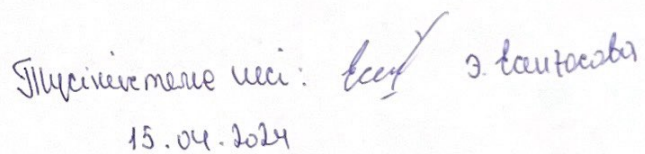 Түсініктеме иесі: Э. Есимтосова
15.04.2024